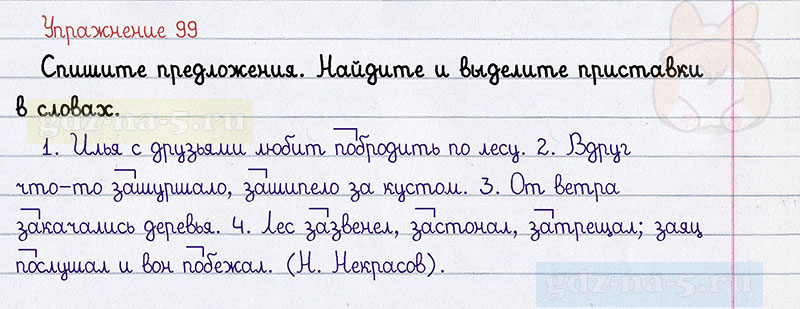 Упражнение 99
Спишите предложения. Найдите и выделите приставки
в словах.
gdz-na-5.ru
1. Илья с друзьями любит побродить по лесу. 2. Вдруг
что-то зашуршало, зашипело за кустом. 3. От ветра
закачались деревья. 4. Лес зазвенел, застонал, затрещал; заяц
послушал и вон побежал. (Н. Некрасов).
gdz-na-5.ru